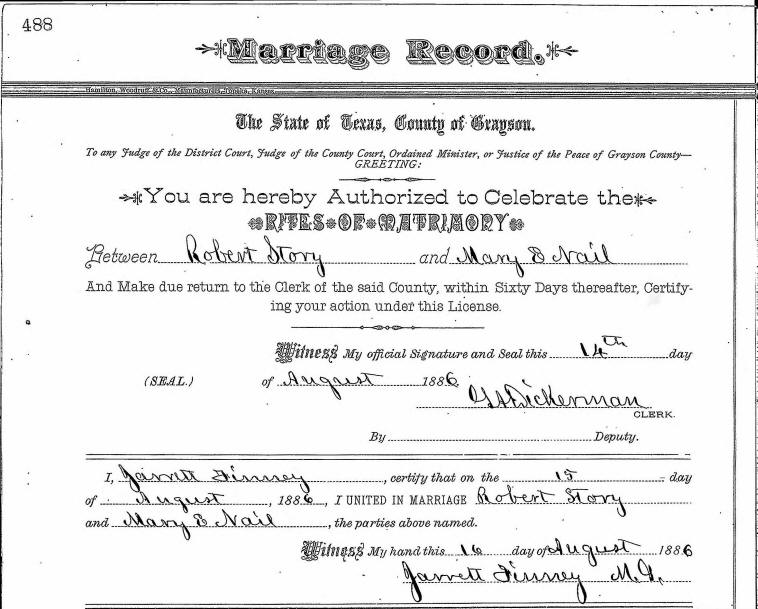 488
Marriage Record.
Hamilton, Woodruff & Co., Manufacturers, Topeka, Kansas.
The State of Texas, County of Grayson.
To any Judge of the District Court, Judge of the County Court, Ordained Minister, or Justice of the Peace of Grayson County—
GREETING:
You are hereby Authorized to Celebrate the
RITES OF MATRIMONY
Between Robert Story and Mary E Nail
And Make due return to the Clerk of the said County, within Sixty Days thereafter, Certify-
ing your action under this License.
Witness My official Signature and Seal this 14th day
(SEAL.) of August 1886
Dickerman
CLERK.
By Deputy.
I, Jarrett Finney, certify that on the 15 day
of August, 1886, I UNITED IN MARRIAGE Robert Story
and Mary E Nail, the parties above named.
Witness My hand this 16 day of August 1886
Jarrett Finney M.G.